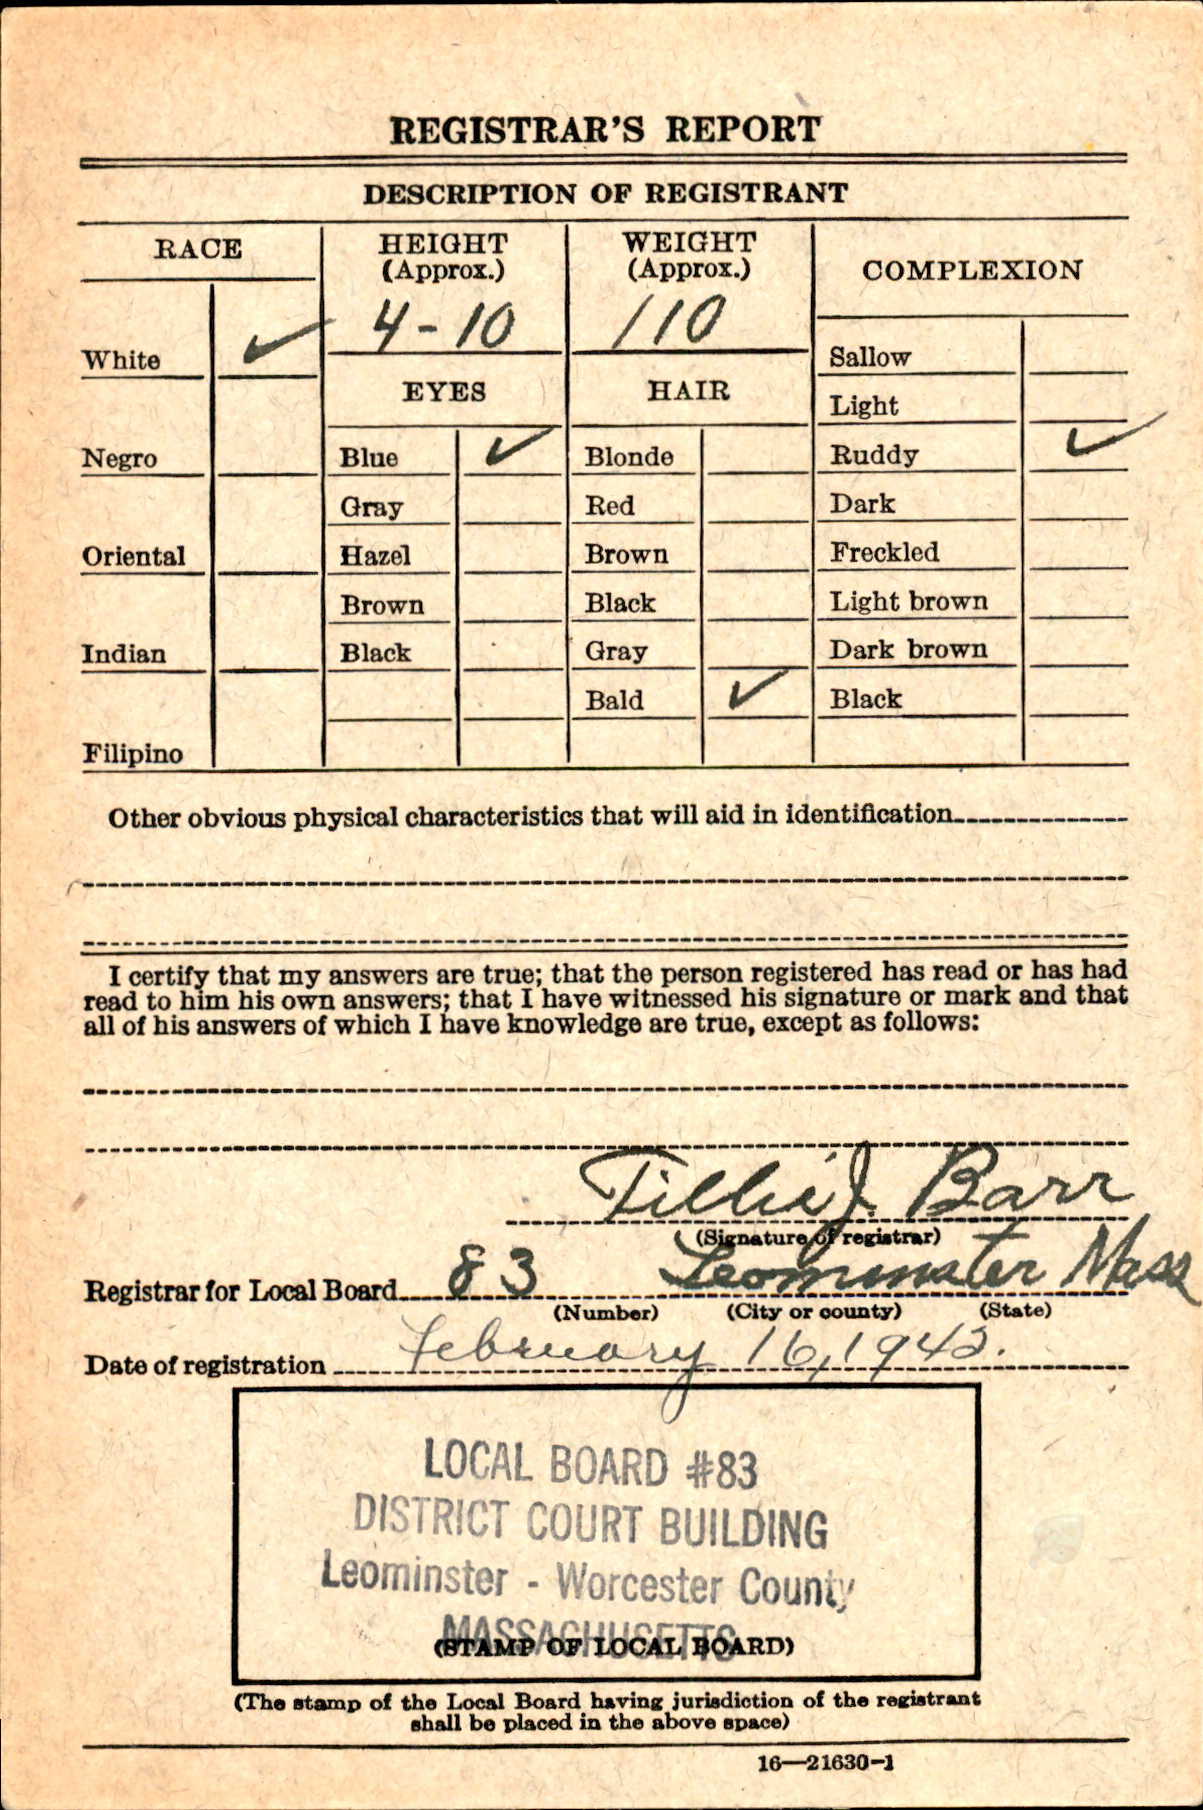 REGISTRAR'S REPORT
DESCRIPTION OF REGISTRANT
RACE
HEIGHT
(Approx.)
WEIGHT
(Approx.)
COMPLEXION
4-10
110
White ✓
Sallow
EYES
HAIR
Light
Negro
Blue ✓
Blonde
Ruddy ✓
Gray
Red
Dark
Oriental
Hazel
Brown
Freckled
Brown
Black
Light brown
Indian
Black
Gray
Dark brown
Bald ✓
Black
Filipino
Other obvious physical characteristics that will aid in identification
I certify that my answers are true; that the person registered has read or has had
read to him his own answers; that I have witnessed his signature or mark and that
all of his answers of which I have knowledge are true, except as follows:
Tillie J. Barr
(Signature of registrar)
Registrar for Local Board 83 Leominster Mass
(Number) (City or county) (State)
Date of registration February 16, 1942.
LOCAL BOARD #83
DISTRICT COURT BUILDING
Leominster - Worcester County
MASSACHUSETTS
(STAMP OF LOCAL BOARD)
(The stamp of the Local Board having jurisdiction of the registrant
shall be placed in the above space)
16—21630-1